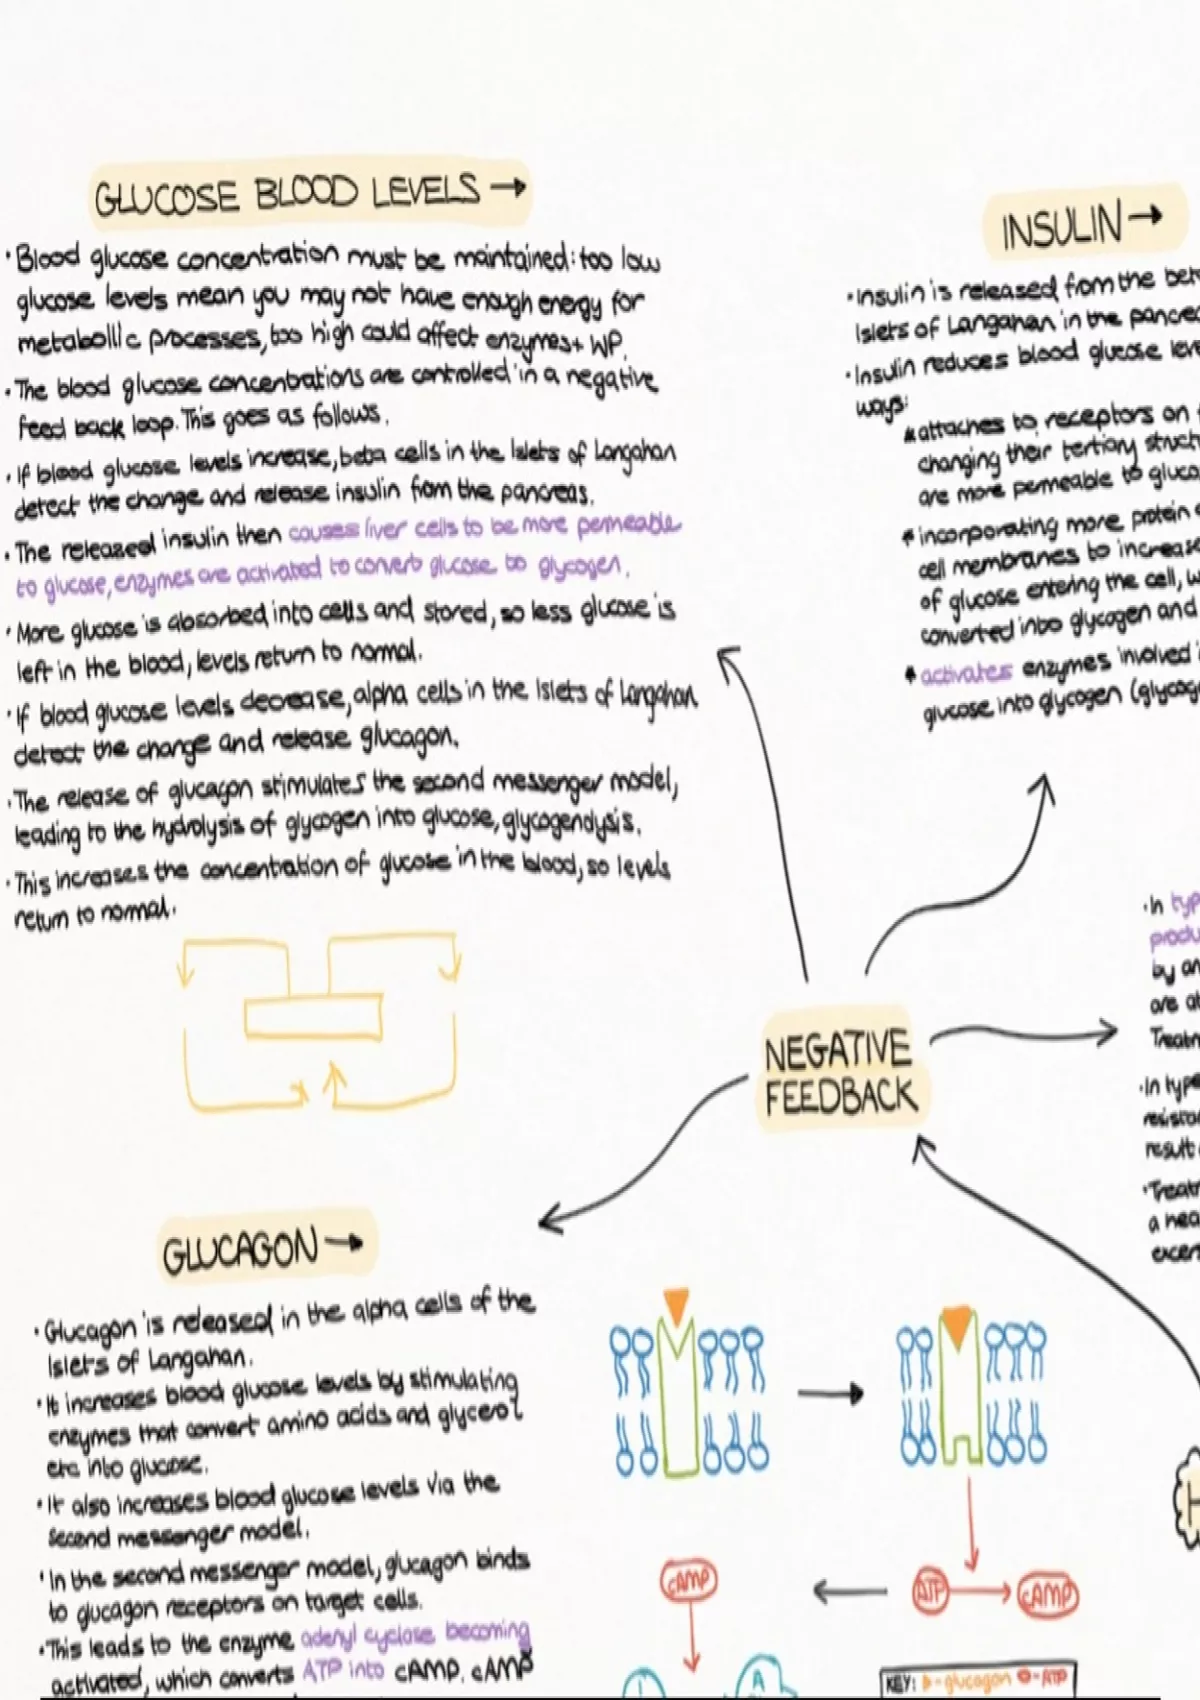 GLUCOSE BLOOD LEVELS →
· Blood glucose concentration must be maintained: too low
glucose levels mean you may not have enough energy for
metabollic processes, too high could affect enzymes + WP.
· The blood glucose concentrations are controlled in a negative
feed back loop. This goes as follows.
· If blood glucose levels increase, beta cells in the Islets of Langahan
detect the change and release insulin from the pancreas.
· The released insulin then causes liver cells to be more permeable
to glucose, enzymes are activated to convert glucose to glycogen.
· More glucose is absorbed into cells and stored, so less glucose is
left in the blood, levels return to normal.
· If blood glucose levels decrease, alpha cells in the Islets of Langahan
detect the change and release glucagon.
· The release of glucagon stimulates the second messenger model,
leading to the hydrolysis of glycogen into glucose, glycogenolysis.
· This increases the concentration of glucose in the blood, so levels
return to normal.
INSULIN →
· Insulin is released from the
Islets of Langahan in the
· Insulin reduces blood glucose
ways:
* attaches to receptors on
changing their tertiary
are more permeable to
* incorporating more protein
cell membranes to
of glucose entering the cell,
converted into glycogen and
* activates enzymes involved
glucose into glycogen
NEGATIVE
FEEDBACK
· In
by
are
· In
result
a
GLUCAGON →
· Glucagon is released in the alpha cells of the
Islets of Langahan.
· It increases blood glucose levels by stimulating
enzymes that convert amino acids and glycerol
etc into glucose.
· It also increases blood glucose levels via the
second messenger model.
· In the second messenger model, glucagon binds
to glucagon receptors on target cells.
· This leads to the enzyme adenyl cyclase becoming
activated, which converts ATP into cAMP. cAMP
cAMP
ATP
cAMP
A
KEY: - glucagon - ATP
H